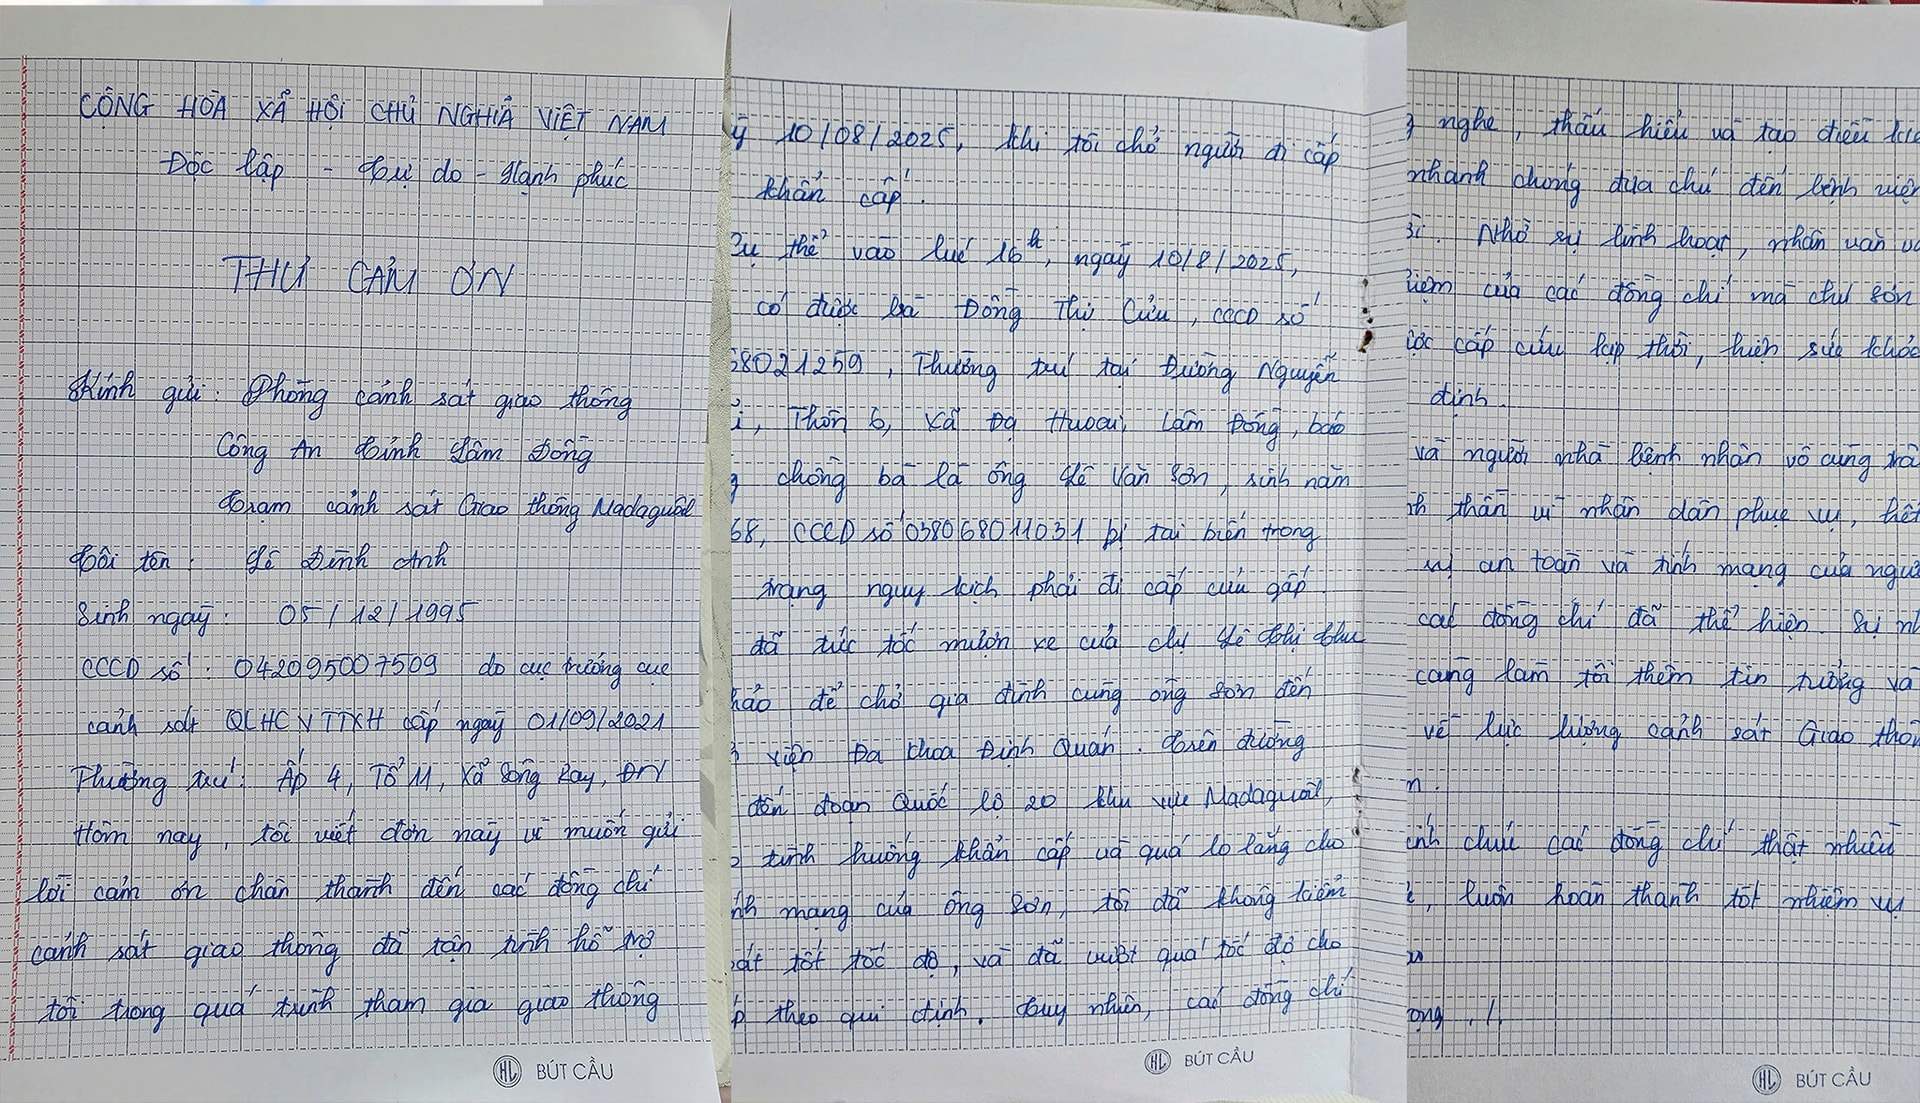 CỘNG HÒA XÃ HỘI CHỦ NGHĨA VIỆT NAM
Độc lập - Tự do - Hạnh phúc
THƯ CẢM ƠN
Kính gửi: Phòng cảnh sát giao thông
Công An tỉnh Lâm Đồng
Trạm cảnh sát Giao thông Madaguôl
Tôi tên: Lê Đình Anh
Sinh ngày: 05/12/1995
CCCD số: 042095007509 do cục trưởng cục
cảnh sát QLHC V TTXH cấp ngày 01/09/2021
Thường trú: Ấp 4, Tổ 11, Xã Sông Ray, ĐN
Hôm nay, tôi viết đơn này vì muốn gửi
lời cảm ơn chân thành đến các đồng chí
cảnh sát giao thông đã tận tình hỗ trợ
tôi trong quá trình tham gia giao thông
BÚT CẦU
10/08/2025, khi tôi chở người đi cấp
khẩn cấp.
thể vào lúc 16h, ngày 10/8/2025,
có được bà Đồng Thị Cửu, CCCD số
8021259, Thường trú tại Đường Nguyễn
Thôn 6, Xã Đạ Huoai, Lâm Đồng, báo
chồng bà là ông Lê Văn Sơn, sinh năm
68, CCCD số 038068011031 bị tai biến trong
trạng nguy kịch phải đi cấp cứu gấp
đã tức tốc mượn xe của chị Lê Thị Thu
hảo để chở gia đình cùng ông Sơn đến
viện Đa khoa Định Quán. Trên đường
đến đoạn Quốc lộ 20 khu vực Madaguôl,
tình huống khẩn cấp và quá lo lắng cho
mạng của ông Sơn, tôi đã không kiểm
tốt tốc độ, và đã vượt quá tốc độ cho
theo qui định. Tuy nhiên, các đồng chí
BÚT CẦU
nghe, thấu hiểu và tạo điều
nhanh chóng đưa chú đến bệnh
Nhờ sự linh hoạt, nhân văn
của các đồng chí mà chú Sơn
cấp cứu kịp thời, hiện sức
định.
và người nhà bệnh nhân vô cùng
thần vì nhân dân phục vụ,
an toàn và tính mạng của
các đồng chí đã thể hiện. Sự
càng làm tôi thêm tin tưởng và
về lực lượng cảnh sát Giao
chúc các đồng chí thật nhiều
luôn hoàn thành tốt nhiệm vụ
BÚT CẦU